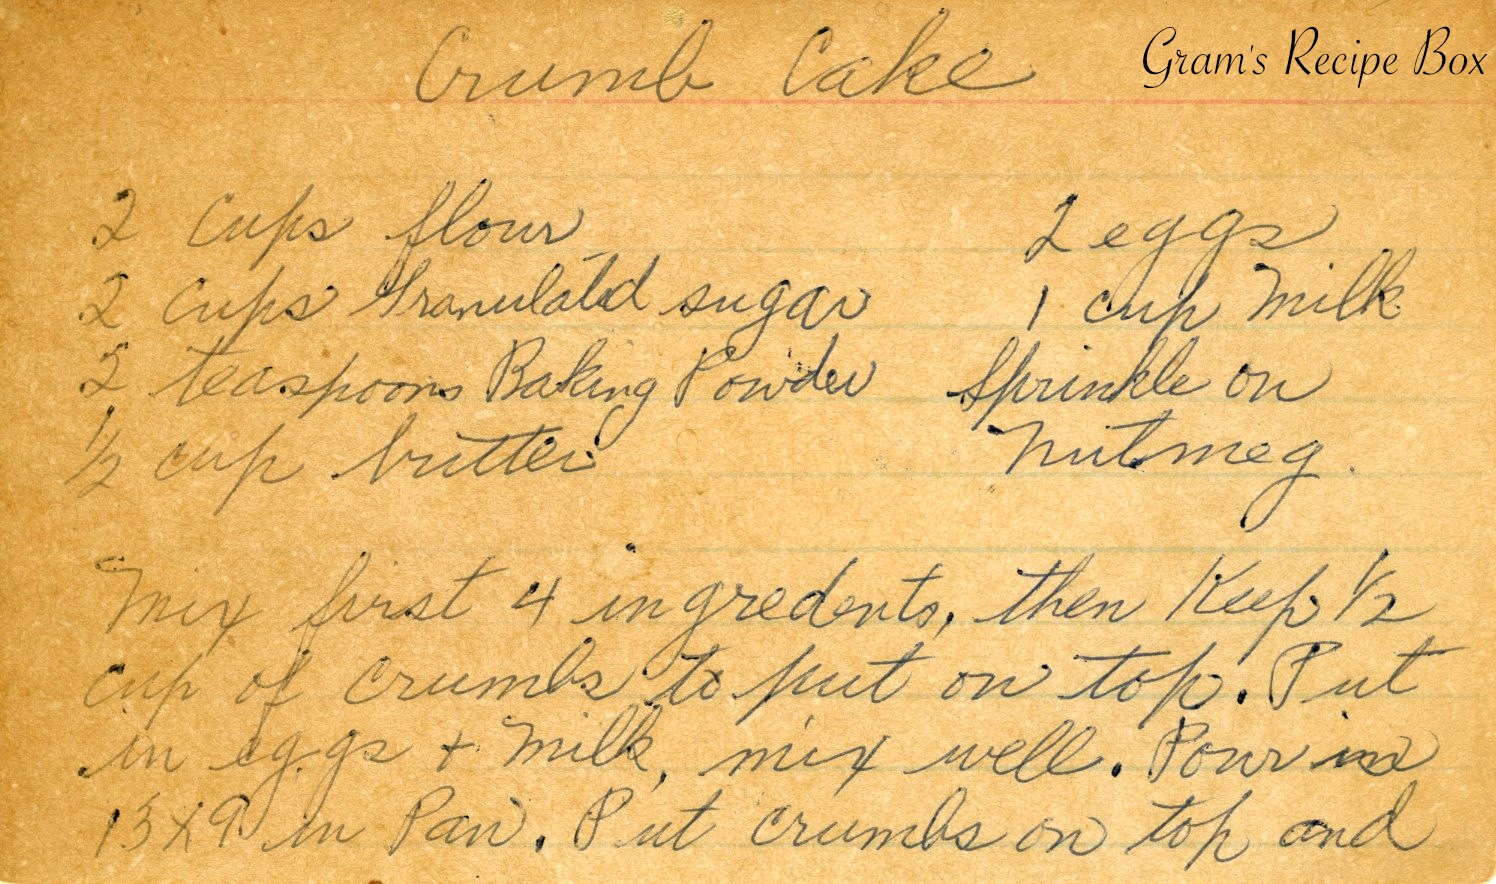 Crumb Cake
Gram's Recipe Box
2 cups flour
2 eggs
2 cups Granulated sugar
1 cup Milk
2 teaspoons Baking Powder
Sprinkle on
1/2 cup butter
Nutmeg.
Mix first 4 ingredents, then Keep 1/2
cup of crumbs to put on top. Put
in eggs + Milk, mix well. Pour in
13x9 in Pan. Put crumbs on top and